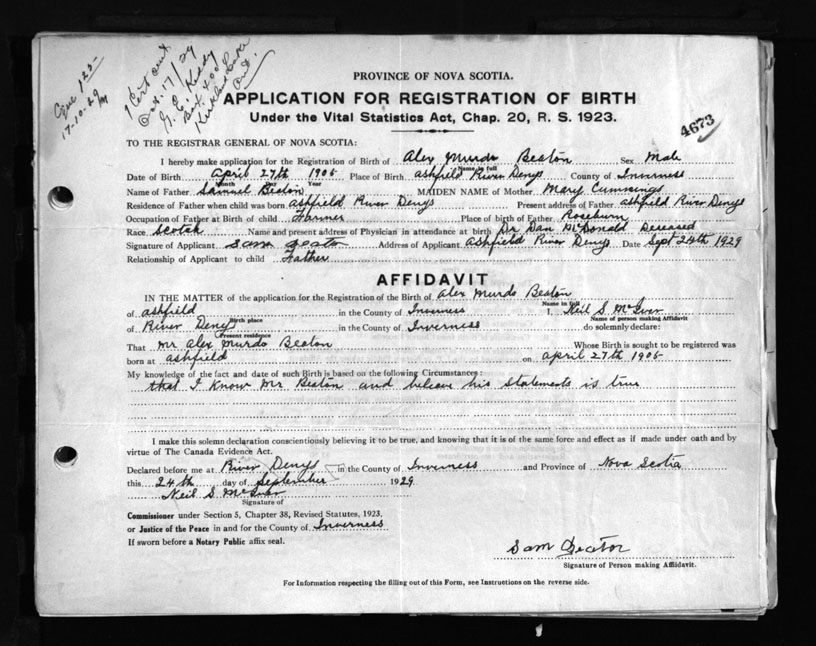 Cert out
Oct. 17/29
Box 400
Kirkland Lake
Ont.
17-10-29
PROVINCE OF NOVA SCOTIA.
APPLICATION FOR REGISTRATION OF BIRTH
Under the Vital Statistics Act, Chap. 20, R. S. 1923.
4673
TO THE REGISTRAR GENERAL OF NOVA SCOTIA:
I hereby make application for the Registration of Birth of Alex Murdo Beaton Sex Male
Name in full
Date of Birth April 27th 1905 Place of Birth ashfield River Denys County of Inverness
Month Day Year
Name of Father Samuel Beaton MAIDEN NAME of Mother Mary Cummings
Residence of Father when child was born ashfield River Denys Present address of Father ashfield River Denys
Occupation of Father at Birth of child Farmer Place of birth of Father Roseburn
Race Scotch Name and present address of Physician in attendance at birth Dr Dan McDonald Deseased
Signature of Applicant Sam Beaton Address of Applicant ashfield River Denys Date Sept 24th 1929
Relationship of Applicant to child Father
AFFIDAVIT
IN THE MATTER of the application for the Registration of the Birth of Alex Murdo Beaton
Name in full
of ashfield in the County of Inverness I, Neil S. McIver
Birth place Name of person making Affidavit
of River Denys in the County of Inverness do solemnly declare:
Present residence
That mr Alex Murdo Beaton Whose Birth is sought to be registered was
born at ashfield on April 27th 1905
My knowledge of the fact and date of such Birth is based on the following Circumstances:
that I know Mr Beaton and beleave his statements is true
I make this solemn declaration conscientiously believing it to be true, and knowing that it is of the same force and effect as if made under oath and by
virtue of The Canada Evidence Act.
Declared before me at River Denys in the County of Inverness and Province of Nova Scotia
this 24th day of September 1929
Neil S McIver
Signature of
Commissioner under Section 5, Chapter 38, Revised Statutes, 1923,
or Justice of the Peace in and for the County of Inverness
If sworn before a Notary Public affix seal.
Sam Beaton
Signature of Person making Affidavit.
For Information respecting the filling out of this Form, see Instructions on the reverse side.